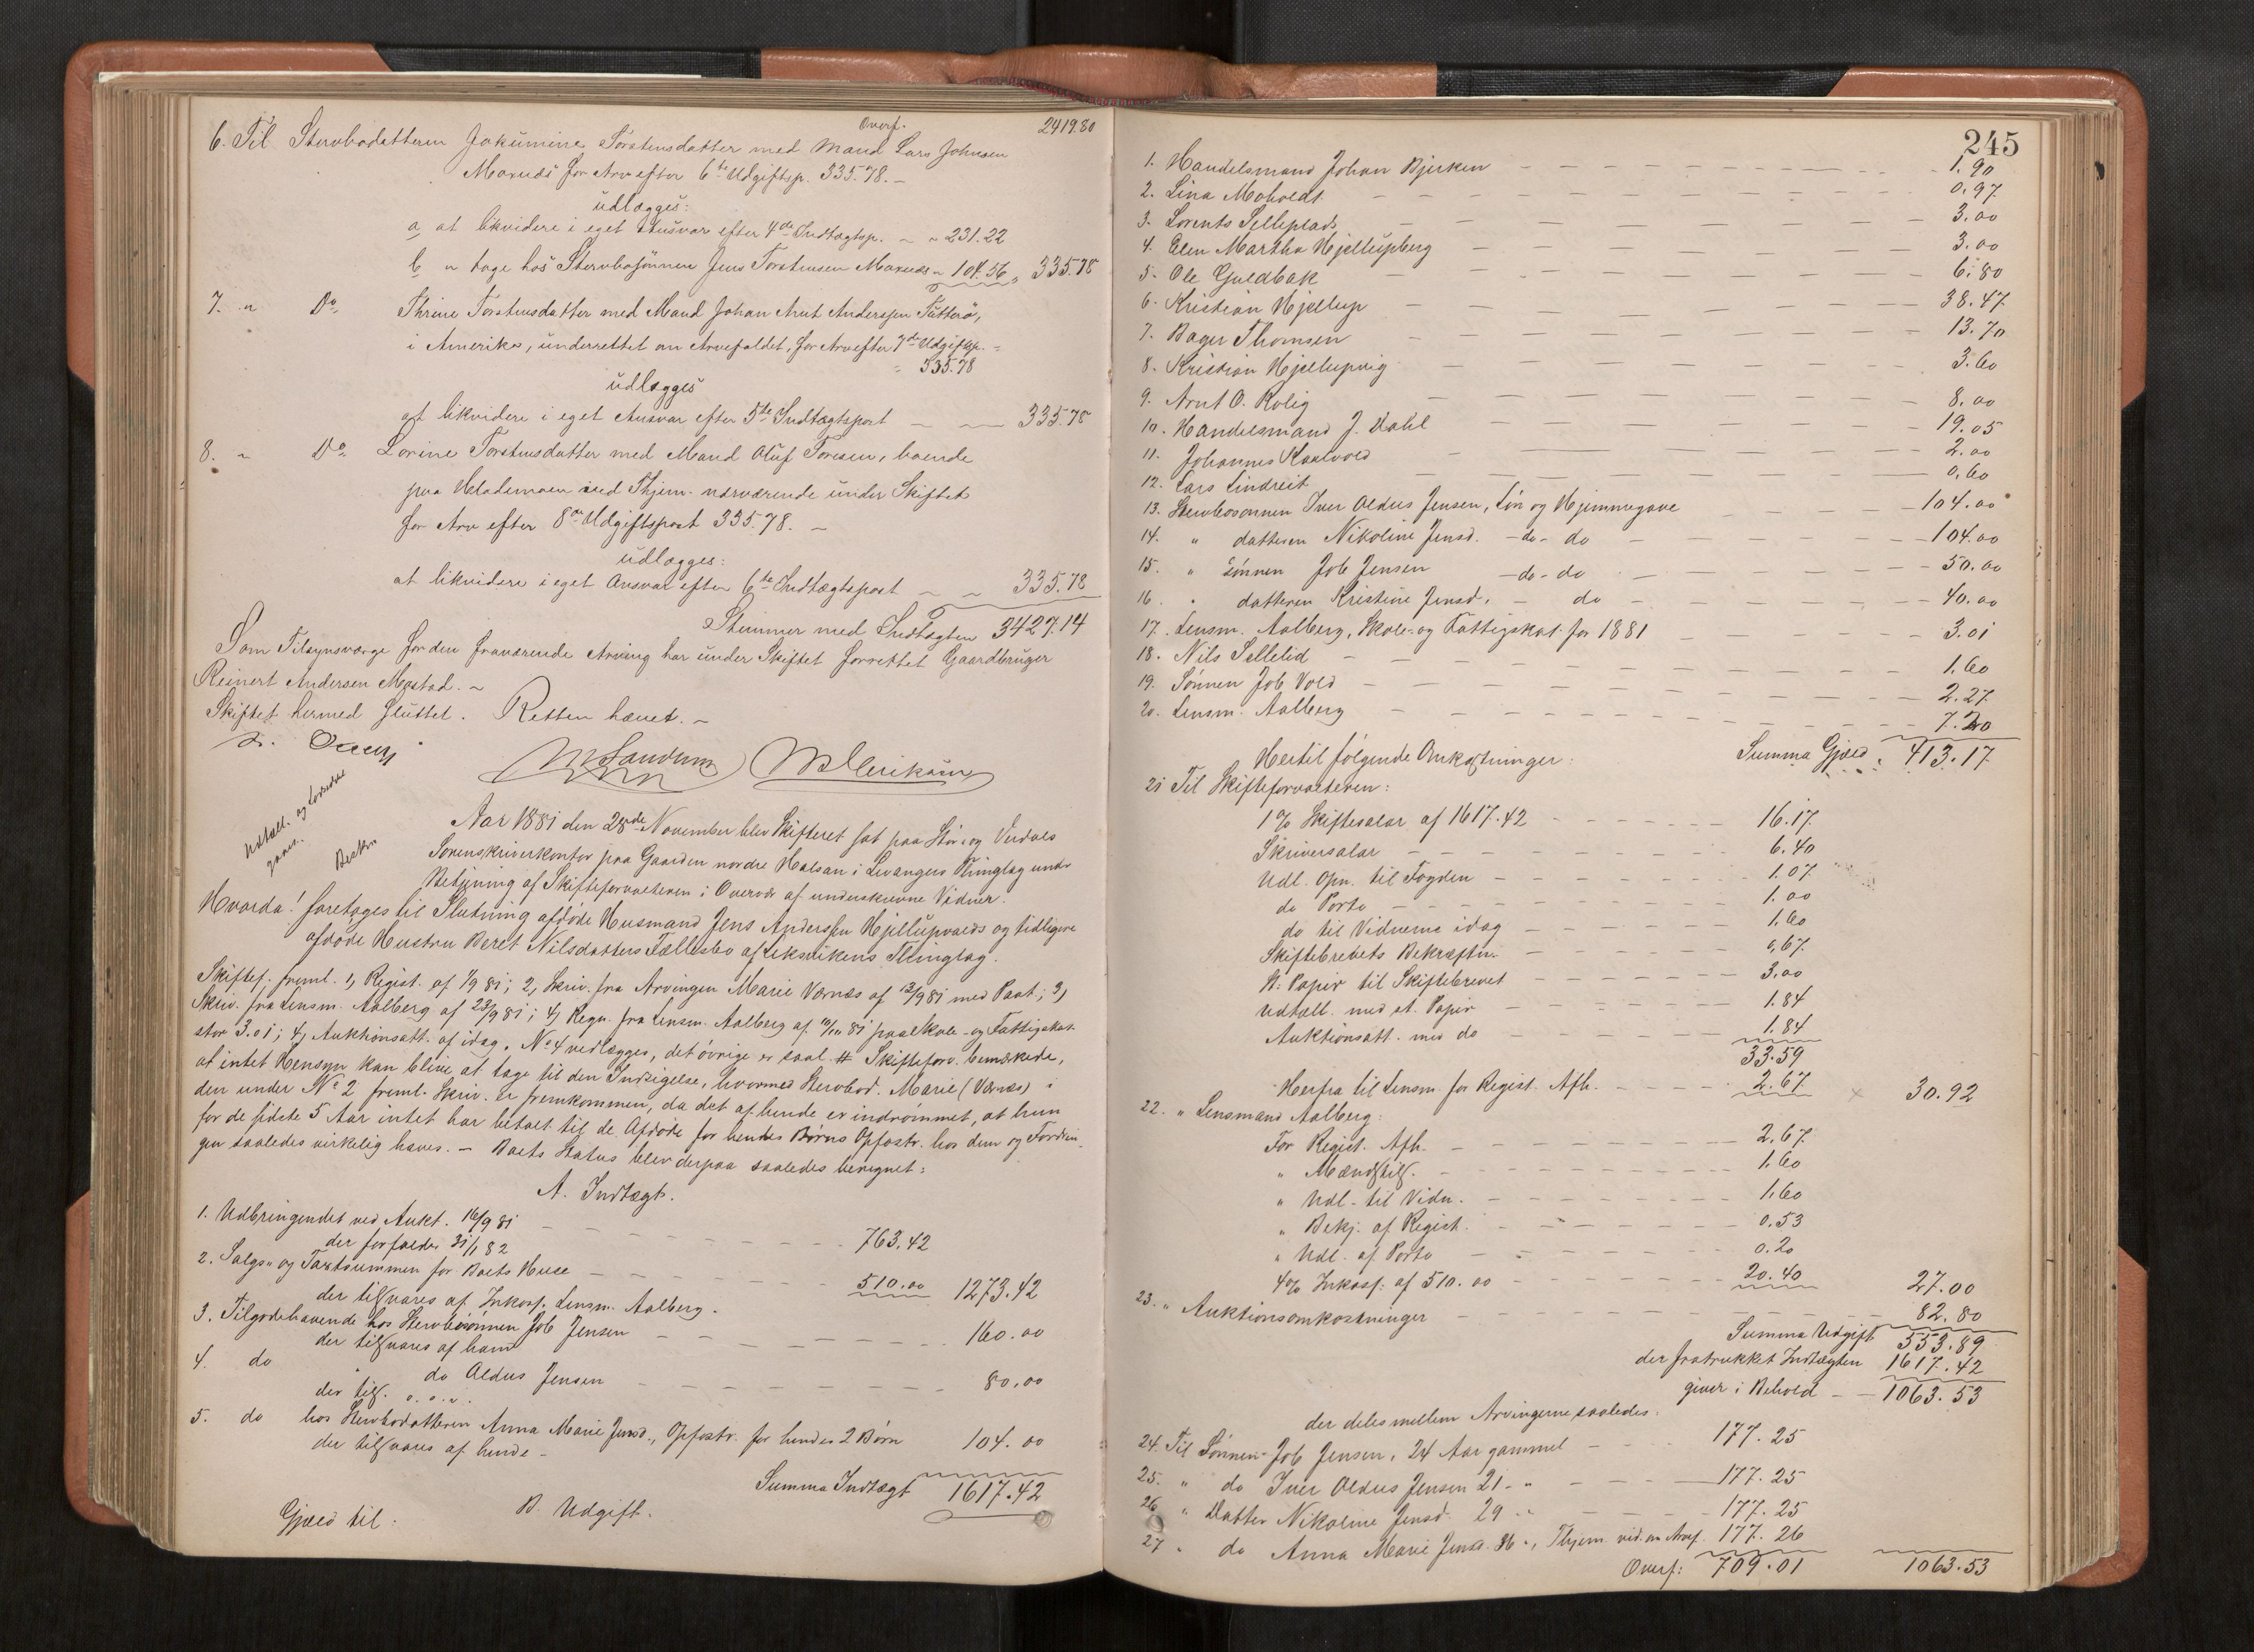 Overf. 2419.80
6. Til Stervbodatteren Jakumine Torstensdatter med Mand Lars Johnsen
Maxnæs for Arv efter 6te Udgiftsp. 335.78. –
udlægges:
a at likvidere i eget Ansvar efter 4de Indtægtsp. – „ 231.22
b „ tage hos Stervbosönnen Jens Torstensen Maxnæs „ 104.56 „ 335.78
7. „ Do Thrine Torstensdatter med Mand Johan Arnt Anderssen Tütterö,
i Amerika, underrettet om Arvefaldet, for Arv efter 7de Udgiftsp. =
= 335.78
udlægges
at likvidere i eget Ansvar efter 5te Indtægtspost – — 335.78
8. „ Do Lorine Torstensdatter med Mand Oluf Toresen, boende
paa Melademoen i Thjem. nærværende under Skiftet
for Arv efter 8de Udgiftspost 335.78. –
udlægges:
at likvidere i eget Ansvar efter 6te Indtægtspost – „ 335.78
Stemmer med Indtægten 3427.14
Som Tilsynsværge for den fraværende Arving har under Skiftet forrettet Gaardbruger
Reinert Andersen Mostad. –
Skiftet hermed sluttet. Retten hævet. –
Udtall. og
Aar 1881 den 28de November blev Skifteret sat paa Stör- og Værdals
Sorenskriverkontor paa Gaarden nordre Halsan i Levangers Thinglag under
Betjening af Skifteforvalteren i Overvær af underskrevne Vidner.
Hvorda! foretoges til Slutning afdöde Husmand Jens Anderssen Hjellupvalds og tidligere
afdöde Hustru Beret Nilsdatters Fællesbo af Leksvikens Thinglag.
Skiftef. freml. 1, Regist. af 1/9 81; 2, Skriv. fra Arvingen Marie Værnæs af 12/9 81 med Paat; 3,
Skriv. fra Lensm. Aalberg af 23/9 81; 4, Regn. fra Lensm. Aalberg af 11/11 81 paa Skole- og Fattigskat
stor 3.01; 4, Auktionsatt. af idag. No 4 vedlægges, det övrige er saal. # Skifteforv. bemærkede,
at intet Hensyn kan blive at tage til den Indsigelse, hvormed Stervbod. Marie (Værnæs) i
den under No 2 freml. Skriv. er fremkommen, da det af hende er indrömmet, at hun
for de sidste 5 Aar intet har betalt til de Afdöde for hendes Börns Opfostr. hos dem og Fordrin-
gen saaledes virkelig haves. – Boets Status blev derpaa saaledes beregnet:
A. Indtægt.
1. Udbringendet ved Aukt. 16/9 81 – – – 763.42
der forfalder 31/1 82
2. Salgs- og Taxtsummen for Boets Huse – – – 510.00 1273.42
der tilsvares af Inkass. Lensm. Aalberg.
3. Tilgodehavende hos Stervbosönnen Job Jensen – – – 160.00
der tilsvares af ham
4. do „ do Aldus Jensen – – – 80.00
der tils. o. s. v.
5. do hos Stervbodatteren Anna Marie Jensd., Opfostr. for hendes 2 Börn 104.00
der tilsvares af hende –
Summa Indtægt 1617.42
B. Udgift.
Gjæld til:
245
1. Handelsmand Johan Bjerken – – – 1.90
2. Lina Moholdt – – – 0.97
3. Lorents Selleplads – – – 3.00
4. Elen Martha Hjellupberg – – – 3.00
5. Ole Guldbak – – – 6.80
6. Kristian Hjellup – – – 38.47
7. Bager Thomsen – – – 13.70
8. Kristian Hjellupvig – – – 3.60
9. Arnt O. Rolig – – – 8.00
10. Handelsmand J. Dahl – – – 19.05
11. Johannes Kaalvold – – – 2.00
12. Lars Lindreit – – – 0.60
13. Stervbosonnen Iver Oldus Jensen, Lön og Hjemmegave – – – 104.00
14. „ datteren Nikoline Jensd. – do – do – – – 104.00
15. „ Sönnen Job Jensen – do – do – – – 50.00
16. „ datteren Kristine Jensd. – do – – – 40.00
17. Lensm. Aalberg, Skole- og Fattigskat for 1881 – – – 3.01
18. Nils Sellelid – – – 1.60
19. Sönnen Job Vold – – – 2.27
20. Lensm. Aalberg – – – 7.20
Summa Gjæld 413.17
Hertil fölgende Omkostninger:
21 Til Skifteforvalteren:
1% Skiftesalær af 1617.42 – – – 16.17
Skriversalær – – – 6.40
Udl. Opn. til Fogden – – – 1.07
do Porto – – – 1.00
do til Vidnerne idag – – – 1.60
Skiftebrevets Bekræftn. – – – 0,67
St. Papir til Skiftebrevet – – – 3.00
Udtall. med st. Papir – – – 1.84
Auktionsatt. med do – – – 1.84
33.59
Herfra til Lensm. for Regist. Afh. – – – 2.67 × 30.92
22. „ Lensmand Aalberg:
For Regist. Afh. – – – 2.67
„ Mændstils. – – – 1.60
„ Udl. til Vidn. – – – 1.60
„ Bekj. af Regist. – – – 0.53
„ Udl. af Porto – – – 0.20
4% Inkass. af 510.00 – – – 20.40 27.00
23. „ Auktionsomkostninger – – – 82.80
Summa Udgift 553.89
der fratrukket Indtægten 1617.42
giver i Behold – – 1063.53
der deles mellem Arvingerne saaledes:
24. Til Sönnen Job Jensen, 24 Aar gammel – – – 177.25
25. „ do Iver Oldus Jensen 21 – „ – – – 177.25
26. „ Datter Nikoline Jensd. 29 – „ – – – 177.25
27 „ do Anna Marie Jensd. 36 „, Thjem. vid. om Arvef. 177.26
Overf: 709.01 1063.53